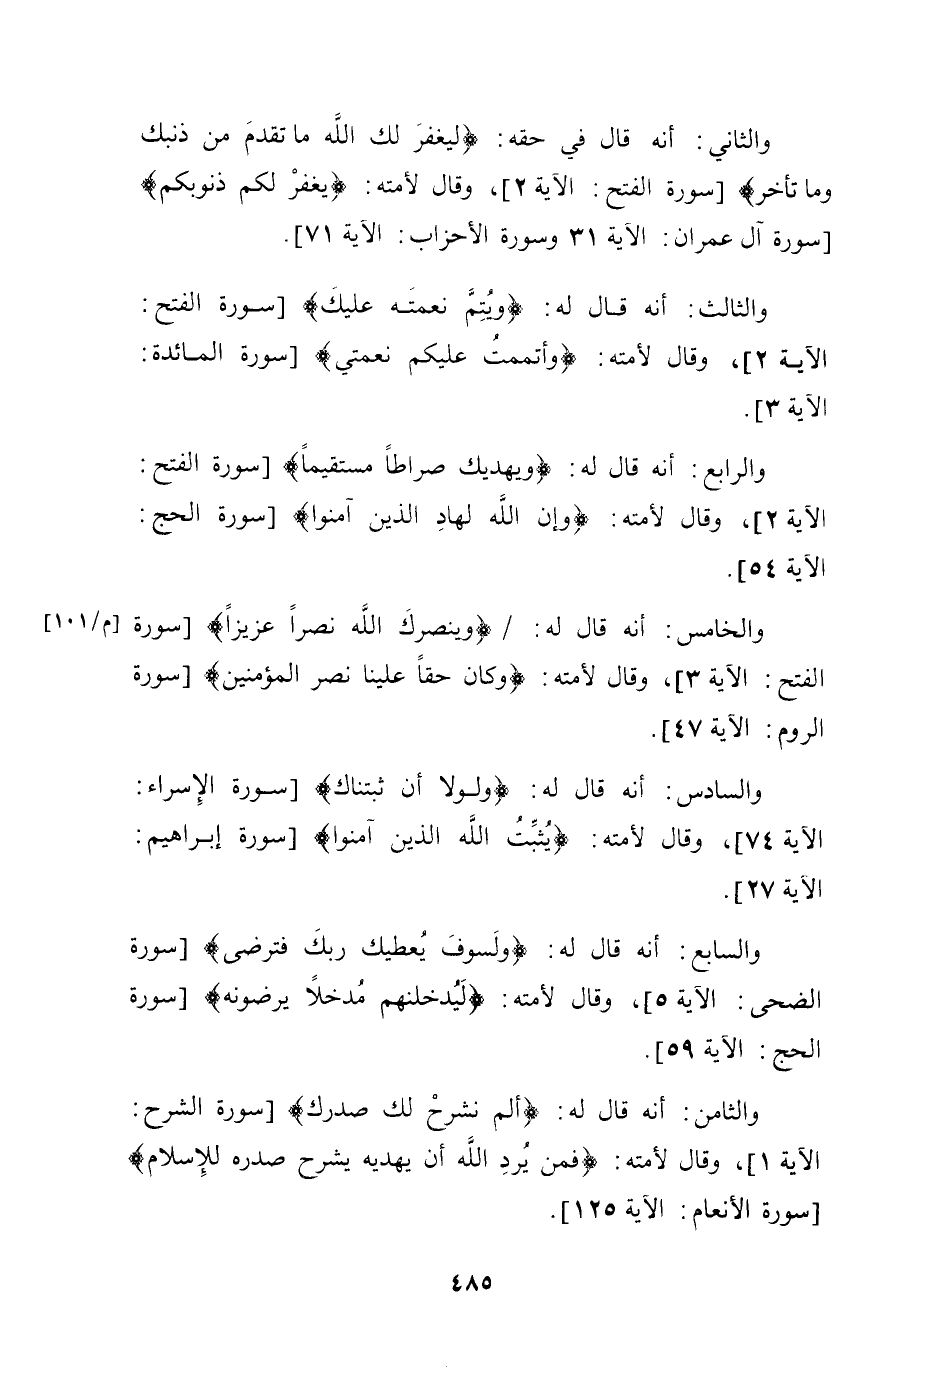 والثاني: أنه قال في حقه: ﴿ليغفرَ لك اللَّه ما تقدمَ من ذنبك
وما تأخر﴾ [سورة الفتح: الآية ٢]، وقال لأمته: ﴿يغفرْ لكم ذنوبكم﴾
[سورة آل عمران: الآية ٣١ وسورة الأحزاب: الآية ٧١].
والثالث: أنه قـال له: ﴿ويُتِمَّ نعمتَـه عليكَ﴾ [سـورة الفتح:
الآيـة ٢]، وقال لأمته: ﴿وأتممتُ عليكم نعمتي﴾ [سورة المـائدة:
الآية ٣].
والرابع: أنه قال له: ﴿ويهديك صراطاً مستقيماً﴾ [سورة الفتح:
الآية ٢]، وقال لأمته: ﴿وإن اللَّه لهادِ الذين آمنوا﴾ [سورة الحج:
الآية ٥٤].
والخامس: أنه قال له: / ﴿وينصركَ اللَّه نصراً عزيزاً﴾ [سورة [م/١٠١]
الفتح: الآية ٣]، وقال لأمته: ﴿وكان حقاً علينا نصر المؤمنين﴾ [سورة
الروم: الآية ٤٧].
والسادس: أنه قال له: ﴿ولـولا أن ثبتناك﴾ [سـورة الإسراء:
الآية ٧٤]، وقال لأمته: ﴿يُثبِّتُ اللَّه الذين آمنوا﴾ [سورة إبـراهيم:
الآية ٢٧].
والسابع: أنه قال له: ﴿ولَسوفَ يُعطيك ربكَ فترضى﴾ [سورة
الضحى: الآية ٥]، وقال لأمته: ﴿لَيُدخلنهم مُدخلًا يرضونه﴾ [سورة
الحج: الآية ٥٩].
والثامن: أنه قال له: ﴿ألم نشرحْ لك صدرك﴾ [سورة الشرح:
الآية ١]، وقال لأمته: ﴿فمن يُردِ اللَّه أن يهديه يشرح صدره للإسلام﴾
[سورة الأنعام: الآية ١٢٥].
٤٨٥